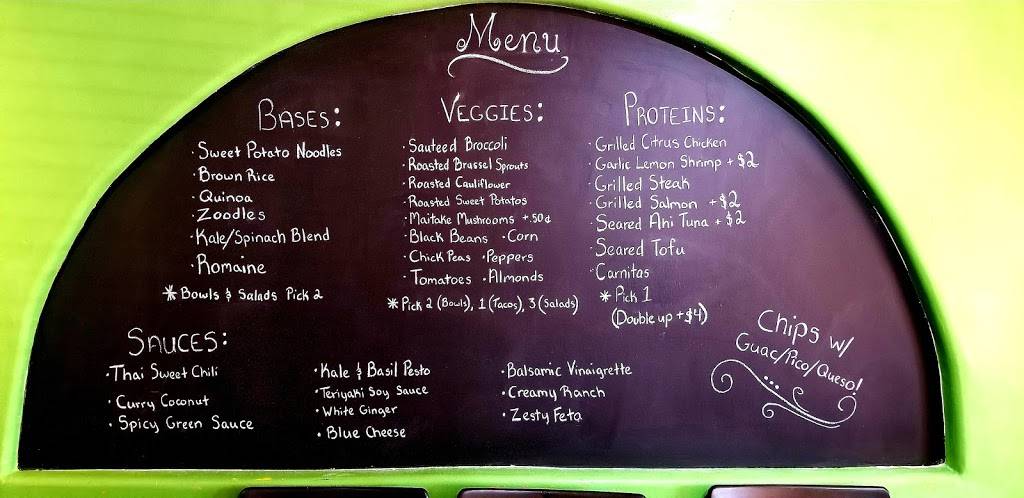 Menu
BASES:
· Sweet Potato Noodles
· Brown Rice
· Quinoa
· Zoodles
· Kale/Spinach Blend
· Romaine
* Bowls & Salads Pick 2
VEGGIES:
· Sauteed Broccoli
· Roasted Brussel Sprouts
· Roasted Cauliflower
· Roasted Sweet Potatos
· Maitake Mushrooms +.50¢
· Black Beans · Corn
· Chick Peas · Peppers
· Tomatoes · Almonds
* Pick 2 (Bowls), 1 (Tacos), 3 (Salads)
PROTEINS:
· Grilled Citrus Chicken
· Garlic Lemon Shrimp + $2
· Grilled Steak
· Grilled Salmon + $2
· Seared Ahi Tuna + $2
· Seared Tofu
· Carnitas
* Pick 1
(Double up + $4)
SAUCES:
· Thai Sweet Chili
· Curry Coconut
· Spicy Green Sauce
· Kale & Basil Pesto
· Teriyaki Soy Sauce
· White Ginger
· Blue Cheese
· Balsamic Vinaigrette
· Creamy Ranch
· Zesty Feta
Chips w/
Guac/Pico/Queso!
...